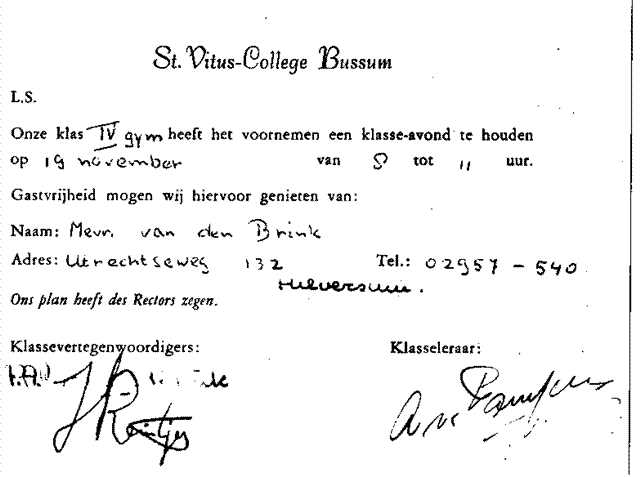 St. Vitus-College Bussum
L.S.
Onze klas IV gym heeft het voornemen een klasse-avond te houden
op 19 november van 8 tot 11 uur.
Gastvrijheid mogen wij hiervoor genieten van:
Naam: Mevr. van den Brink
Adres: Utrechtseweg 132 Tel.: 02957-540
Hilversum.
Ons plan heeft des Rectors zegen.
Klassevertegenwoordigers: Klasseleraar: